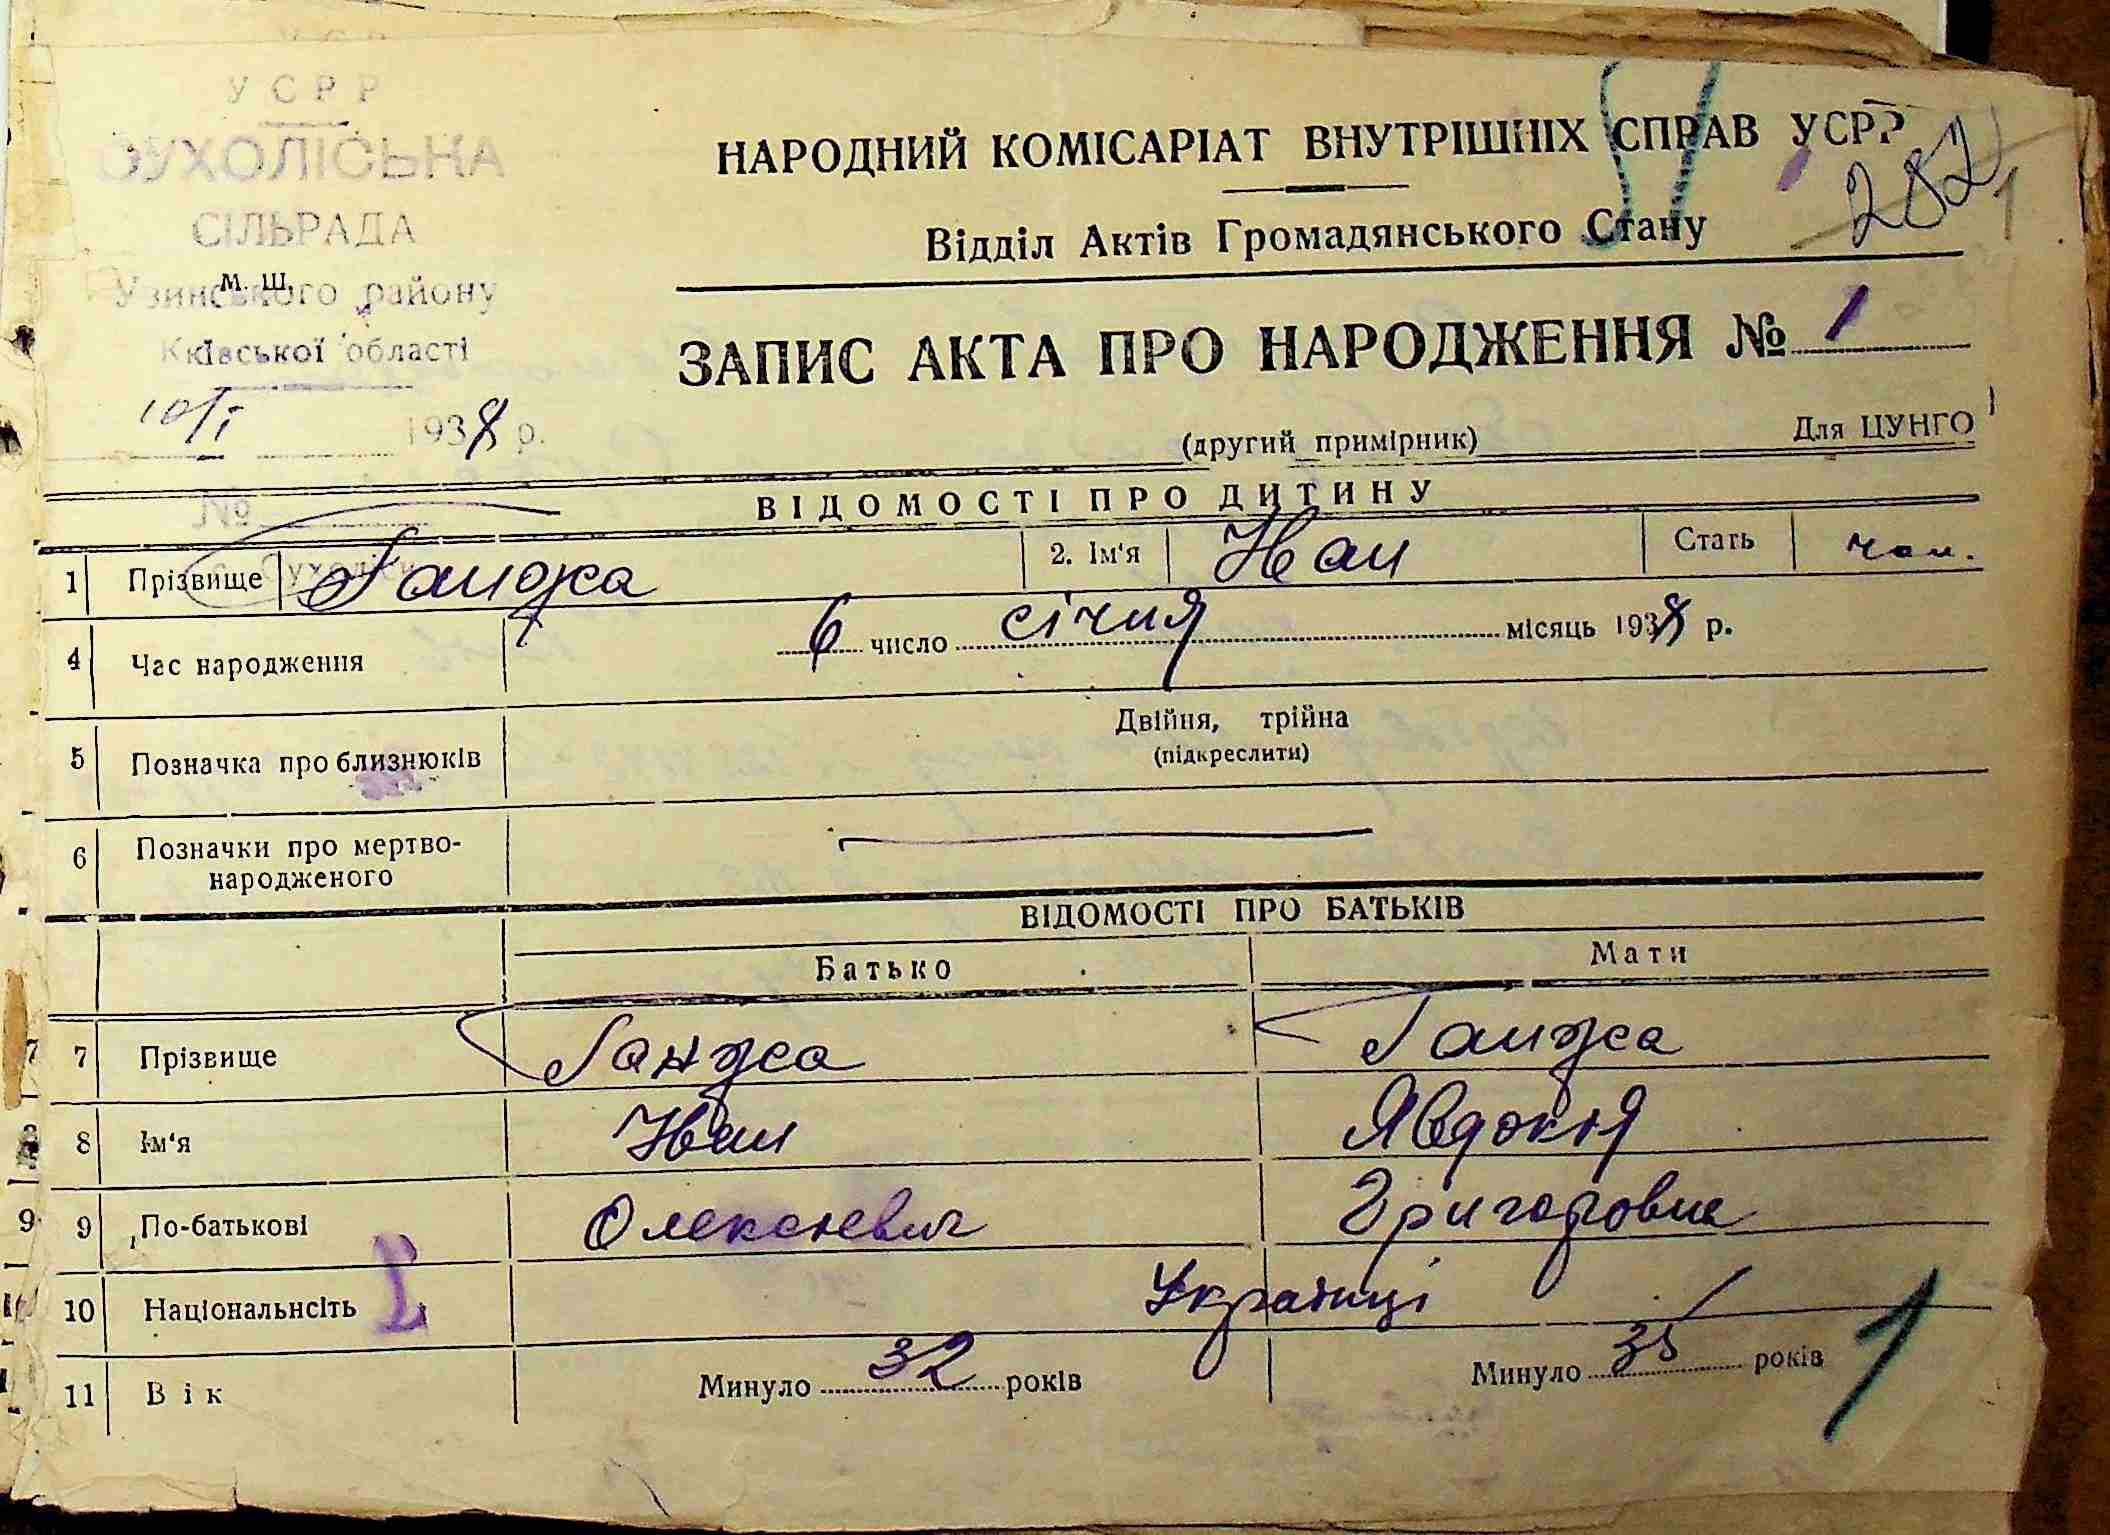 УСРР
СУХОЛІСЬКА
СІЛЬРАДА
м. ш.
Узинського району
Київської області
10/I 1938 р.
№
НАРОДНИЙ КОМІСАРІАТ ВНУТРІШНІХ СПРАВ УСРР
282
1
Відділ Актів Громадянського Стану
ЗАПИС АКТА ПРО НАРОДЖЕННЯ № 1
(другий примірник) Для ЦУНГО
ВІДОМОСТІ ПРО ДИТИНУ
1 Прізвище Ганджа 2. Ім'я Иван Стать чол.
4 Час народження 6 число січня місяць 1938 р.
5 Позначка про близнюків Двійня, трійна
(підкреслити)
6 Позначки про мертво-
народженого
ВІДОМОСТІ ПРО БАТЬКІВ
Батько Мати
7 Прізвище Ганджа Ганджа
8 Ім'я Иван Явдокія
9 По-батькові Олексієвич Григоровна
10 Національнсіть Українці
11 Вік Минуло 32 років Минуло 35 років
1